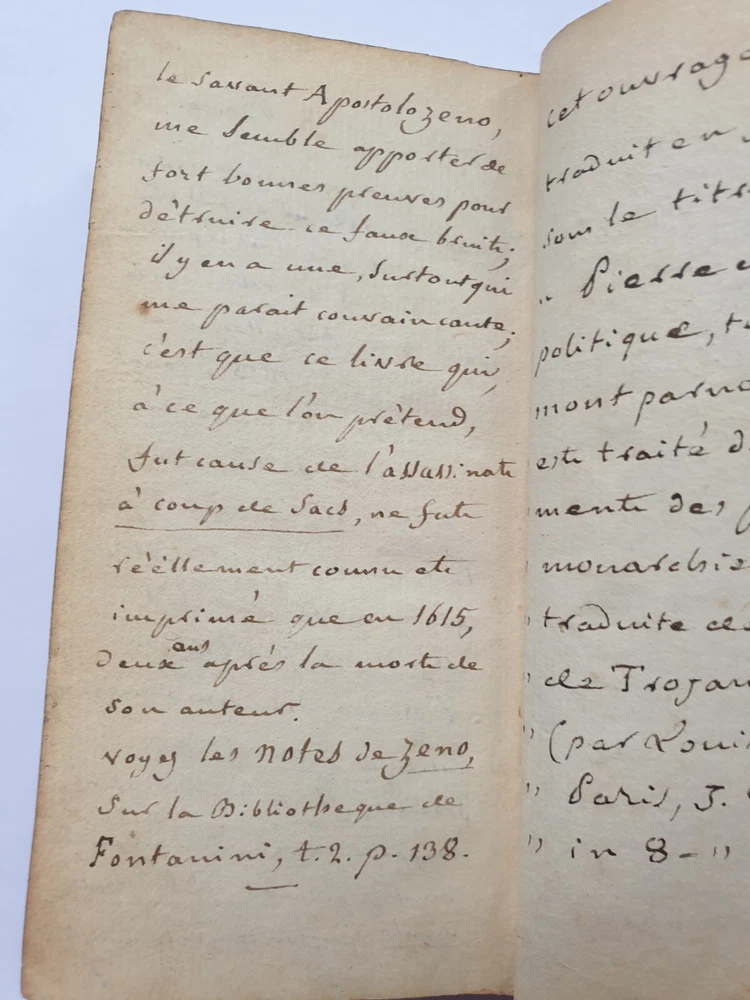 le savant Apostolo zeno,
me semble apporter de
fort bonnes preuves pour
détruire ce faux bruit;
il y en a une, surtout qui
me parait convaincante;
c'est que ce livre qui,
à ce que l'on prétend,
fut cause de l'assassinat
à coup de sacs, ne fut
réèllement connu et
imprimé que en 1615,
deux ans après la mort de
son auteur.
voyez les notes de zeno,
sur la Bibliotheque de
Fontanini, t. 2. p. 138.
cet ouvrage
traduit en
sous le titr
" Pierre
politique,
mont parna
est traité d
ment des
monarchie
" traduite
" de Trojan
" (par Loui
" Paris, J.
" in 8-"